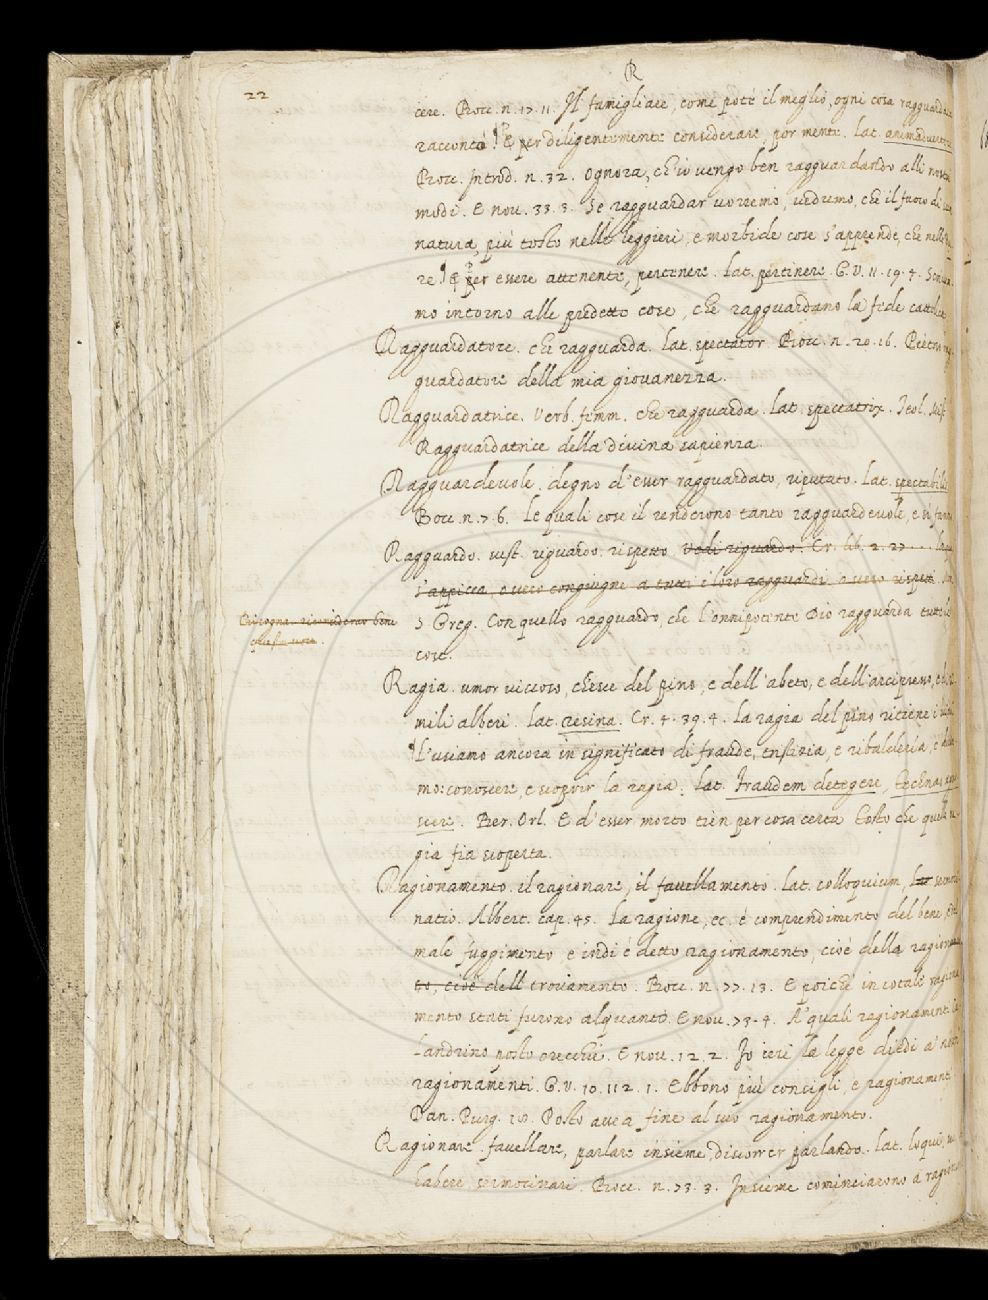 22
R
cere. Bocc. n. 17. 11. Il famigliare, come potè il meglio, ogni cosa ragguardata
racconto. E per diligentemente considerare, por mente. Lat. animadvertere
Bocc. Introd. n. 32. Ognora, ch'io vengo ben ragguardando alli nostri
modi. E nov. 33. 3. Se ragguardar vorremo, vedremo, che il fuoco di sua
natura, più tosto nelle leggieri, e morbide cose s'apprende, che nelle
re. E per essere attenente, pertenere. Lat. pertinere. G. V. 11. 19. 4.
mo intorno alle predette cose, che ragguardano la fede cattolica
Ragguardatore. che ragguarda. Lat. spectator. Bocc. n. 20. 16. Pietro
guardatore della mia giovanezza.
Ragguardatrice. Verb. femm. che ragguarda. Lat. spectatrix. Teol. Mist.
Ragguardatrice della divina sapienza.
Ragguardevole. degno d'esser ragguardato, riputato. Lat. spectabilis
Bocc. n. 7. 6. Le quali cose il renderono tanto ragguardevole, e di
Ragguardo. sust. riguardo, rispetto. Vedi riguardo. Cr. lib. 2. 27.
s'appicca, overo congiugne a tutti i loro ragguardi, overo rispetti
Bisogna riconsiderar bene
S. Greg. Con quello ragguardo, che l'onnipotente Dio ragguarda tutte le
cose.
Ragia. umor viscoso, ch'esce del pino, e dell'abeto, e dell'arcipresso, e di
mili alberi. Lat. resina. Cr. 4. 39. 4. La ragia del pino ritiene i
L'usiamo ancora in significato di fraude, tristizia, e ribalderia, e
mo: conoscere, e scoprir la ragia. Lat. fraudem detegere, technas
scere. Ber. Orl. E d'esser morto tien per cosa certa Tosto che quella ra
gia fia scoperta.
Ragionamento. il ragionare, il favellamento. Lat. colloquium, Lat sermo
natio. Albert. cap. 45. La ragione, ec. è comprendimento del bene, e del
male fuggimento, e indi è detto ragionamento, cioè della ragione
to, cioè dell trovamento. Bocc. n. 77. 13. E poichè in cotale ragiona
mento stati furono alquanto. E nov. 73. 4. A' quali ragionamenti Ca
landrino posto orecchie. E nov. 12. 2. Io ieri la legge diedi a' nostri
ragionamenti. G. V. 10. 112. 1. Ebbono più consigli, e ragionamenti
Dan. Purg. 18. Posto avea fine al suo ragionamento.
Ragionare. favellare, parlare insieme, discorrer parlando. Lat. loqui,
habere sermocinari. Bocc. n. 73. 3. Insieme cominciarono a ragionare